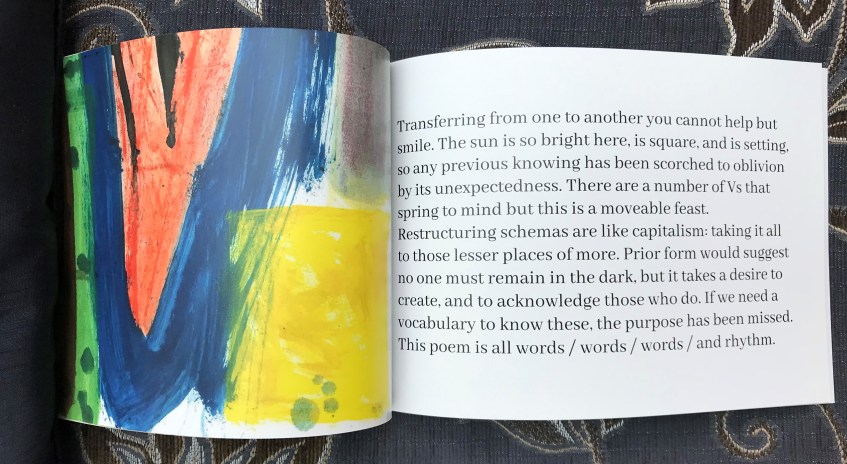 Transferring from one to another you cannot help but
smile. The sun is so bright here, is square, and is setting,
so any previous knowing has been scorched to oblivion
by its unexpectedness. There are a number of Vs that
spring to mind but this is a moveable feast.
Restructuring schemas are like capitalism: taking it all
to those lesser places of more. Prior form would suggest
no one must remain in the dark, but it takes a desire to
create, and to acknowledge those who do. If we need a
vocabulary to know these, the purpose has been missed.
This poem is all words / words / words / and rhythm.